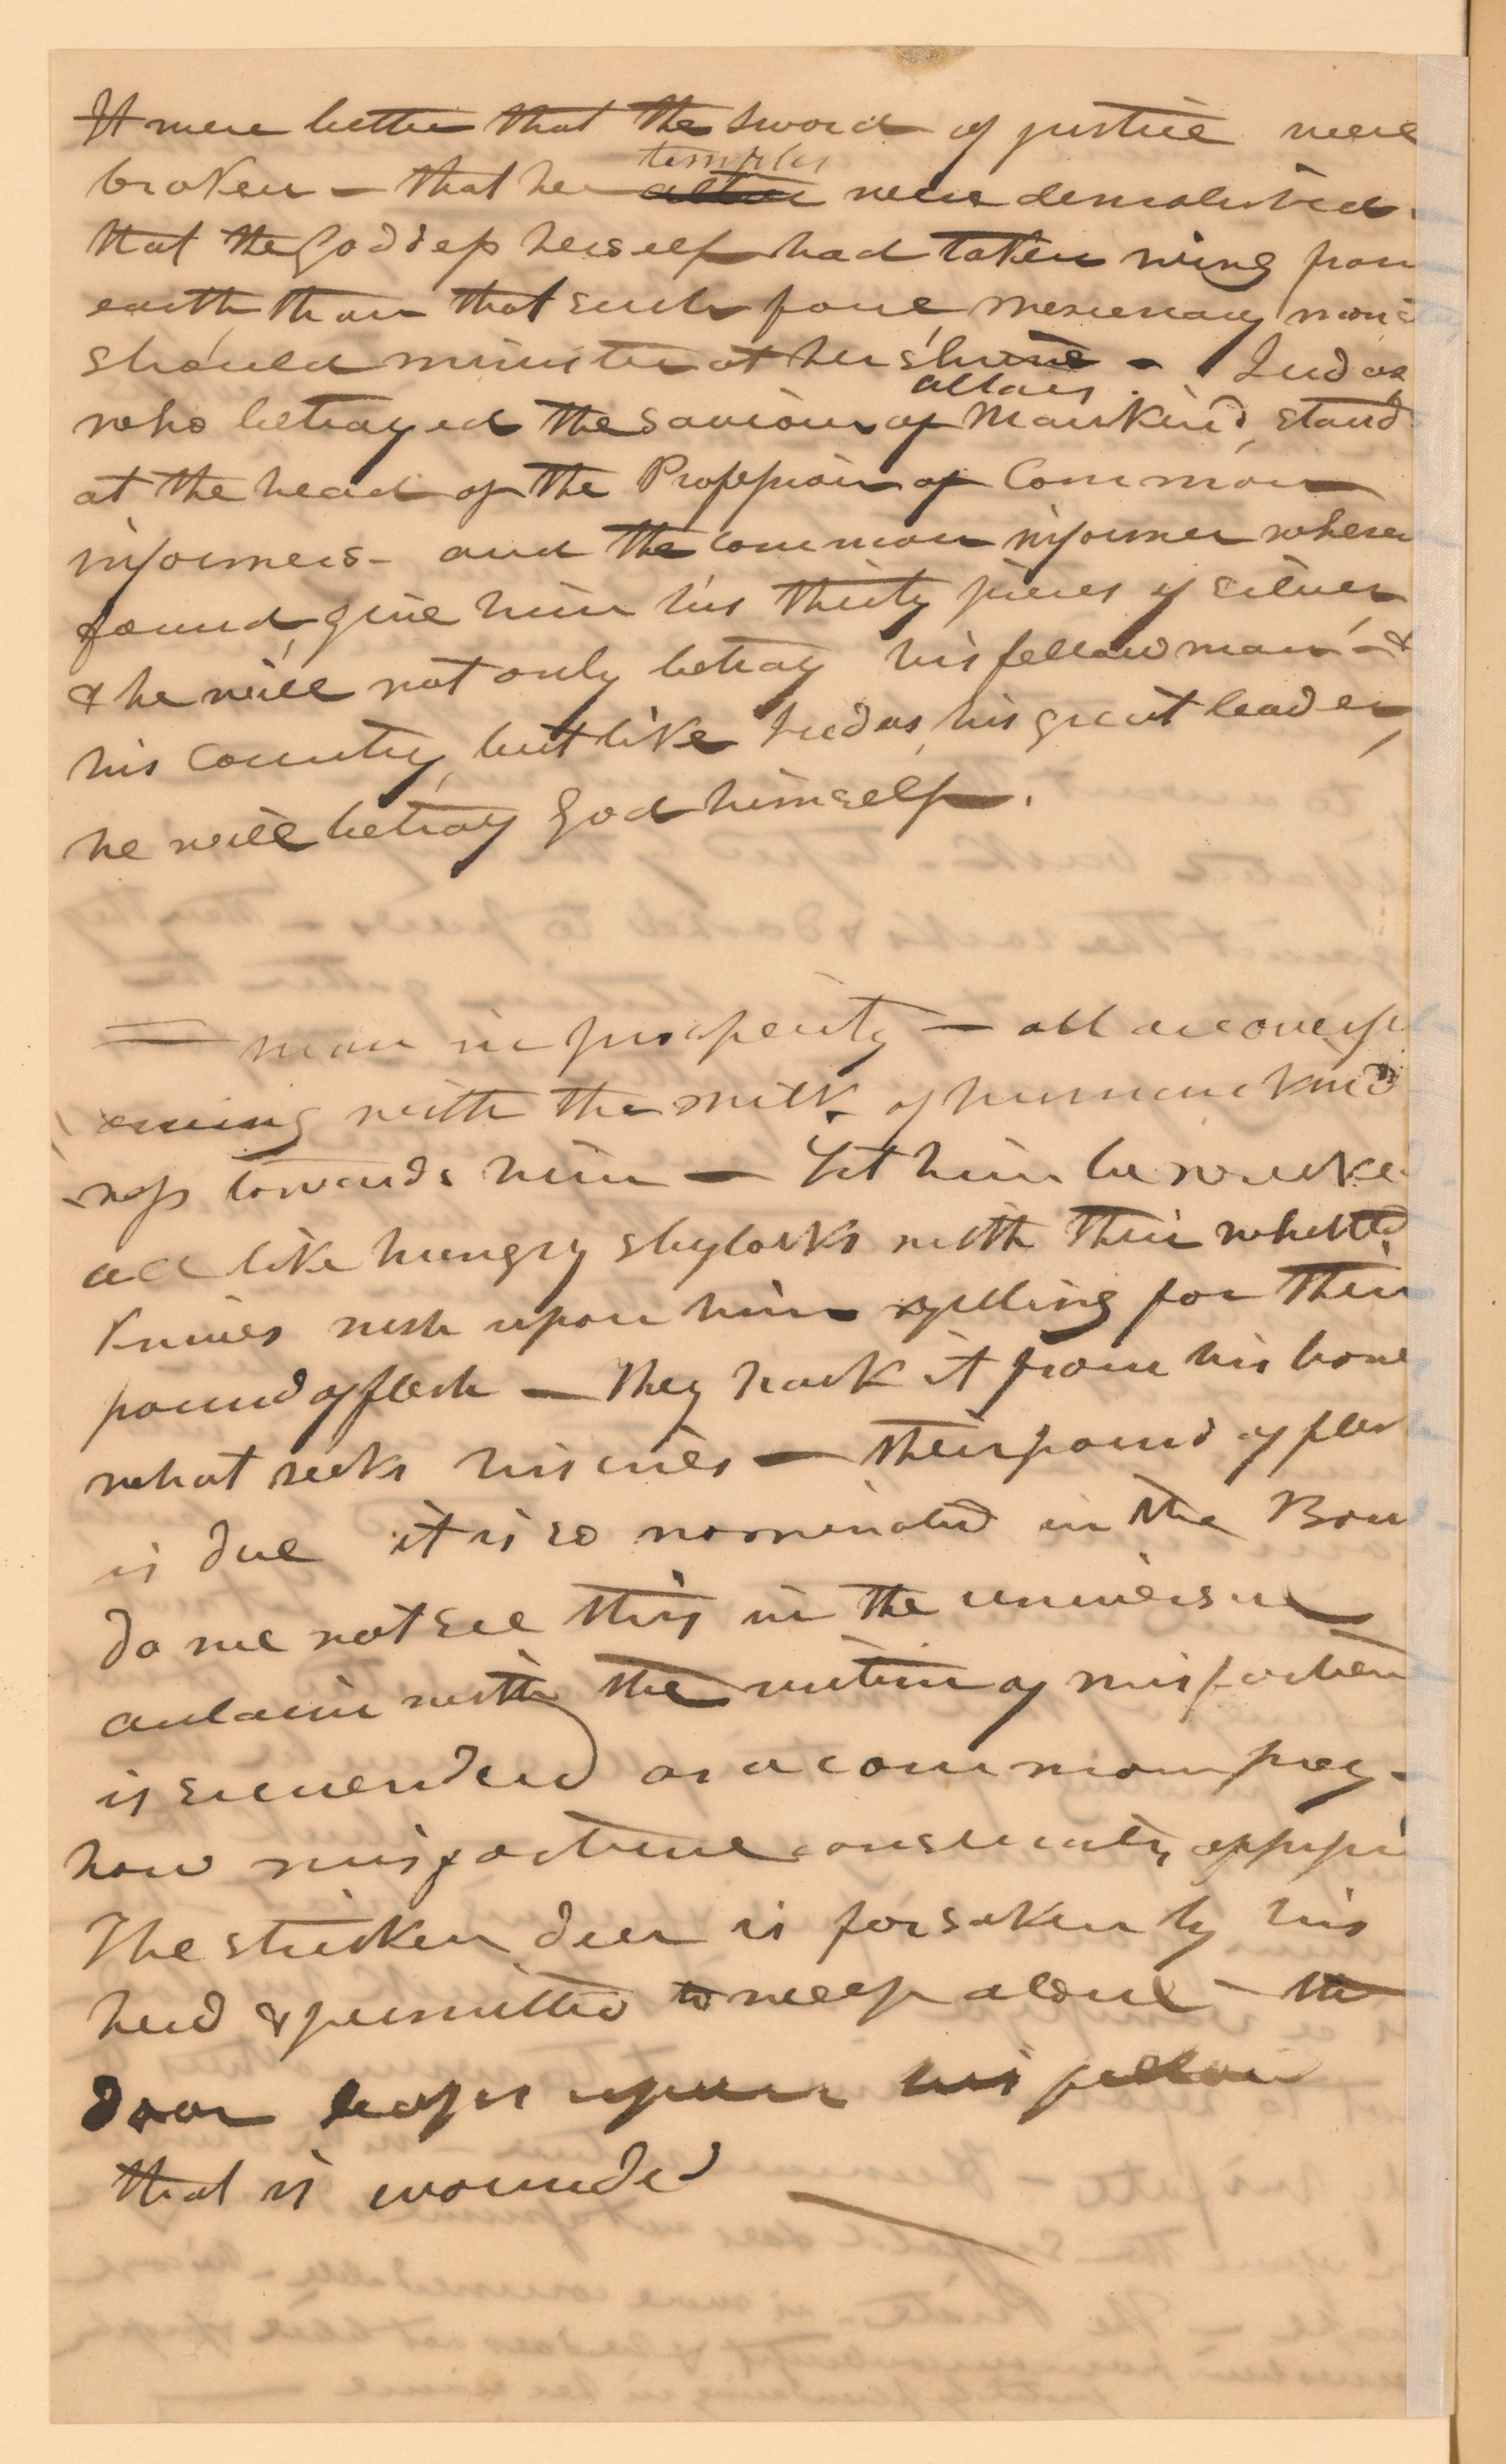 It were better that the sword of justice were
temples
broken – that her altar were demolished
that the Goddess herself had taken wing from
earth than that such foul mercenary
should minister at her shrine – Judas
altars.
who betrayed the Saviour of Mankind, stand
at the head of the Profession of Common
informers – and the common informer where
found, give him his thirty pieces of silver,
& he will not only betray his fellow man – &
his Country, but like Judas, his great leader,
he will betray God himself.
man in prosperity – all are overfl
owing with the milk of human kind
ness towards him – Let him be wrecke
all like hungry shylocks with their whetted
Knives rush upon him yelling for their
pound of flesh – They hack it from his bone
what recks his cries – their pound of flesh
is due it is so nominated in the Bon
do we not see this in the universal
acclaim with the victim of misfortune
is surrendered as a common prey –
how misfortune consecrates
The stricken deer is forsaken by his
herd & permitted to weep alone – the
upon his fellow
that is wounded